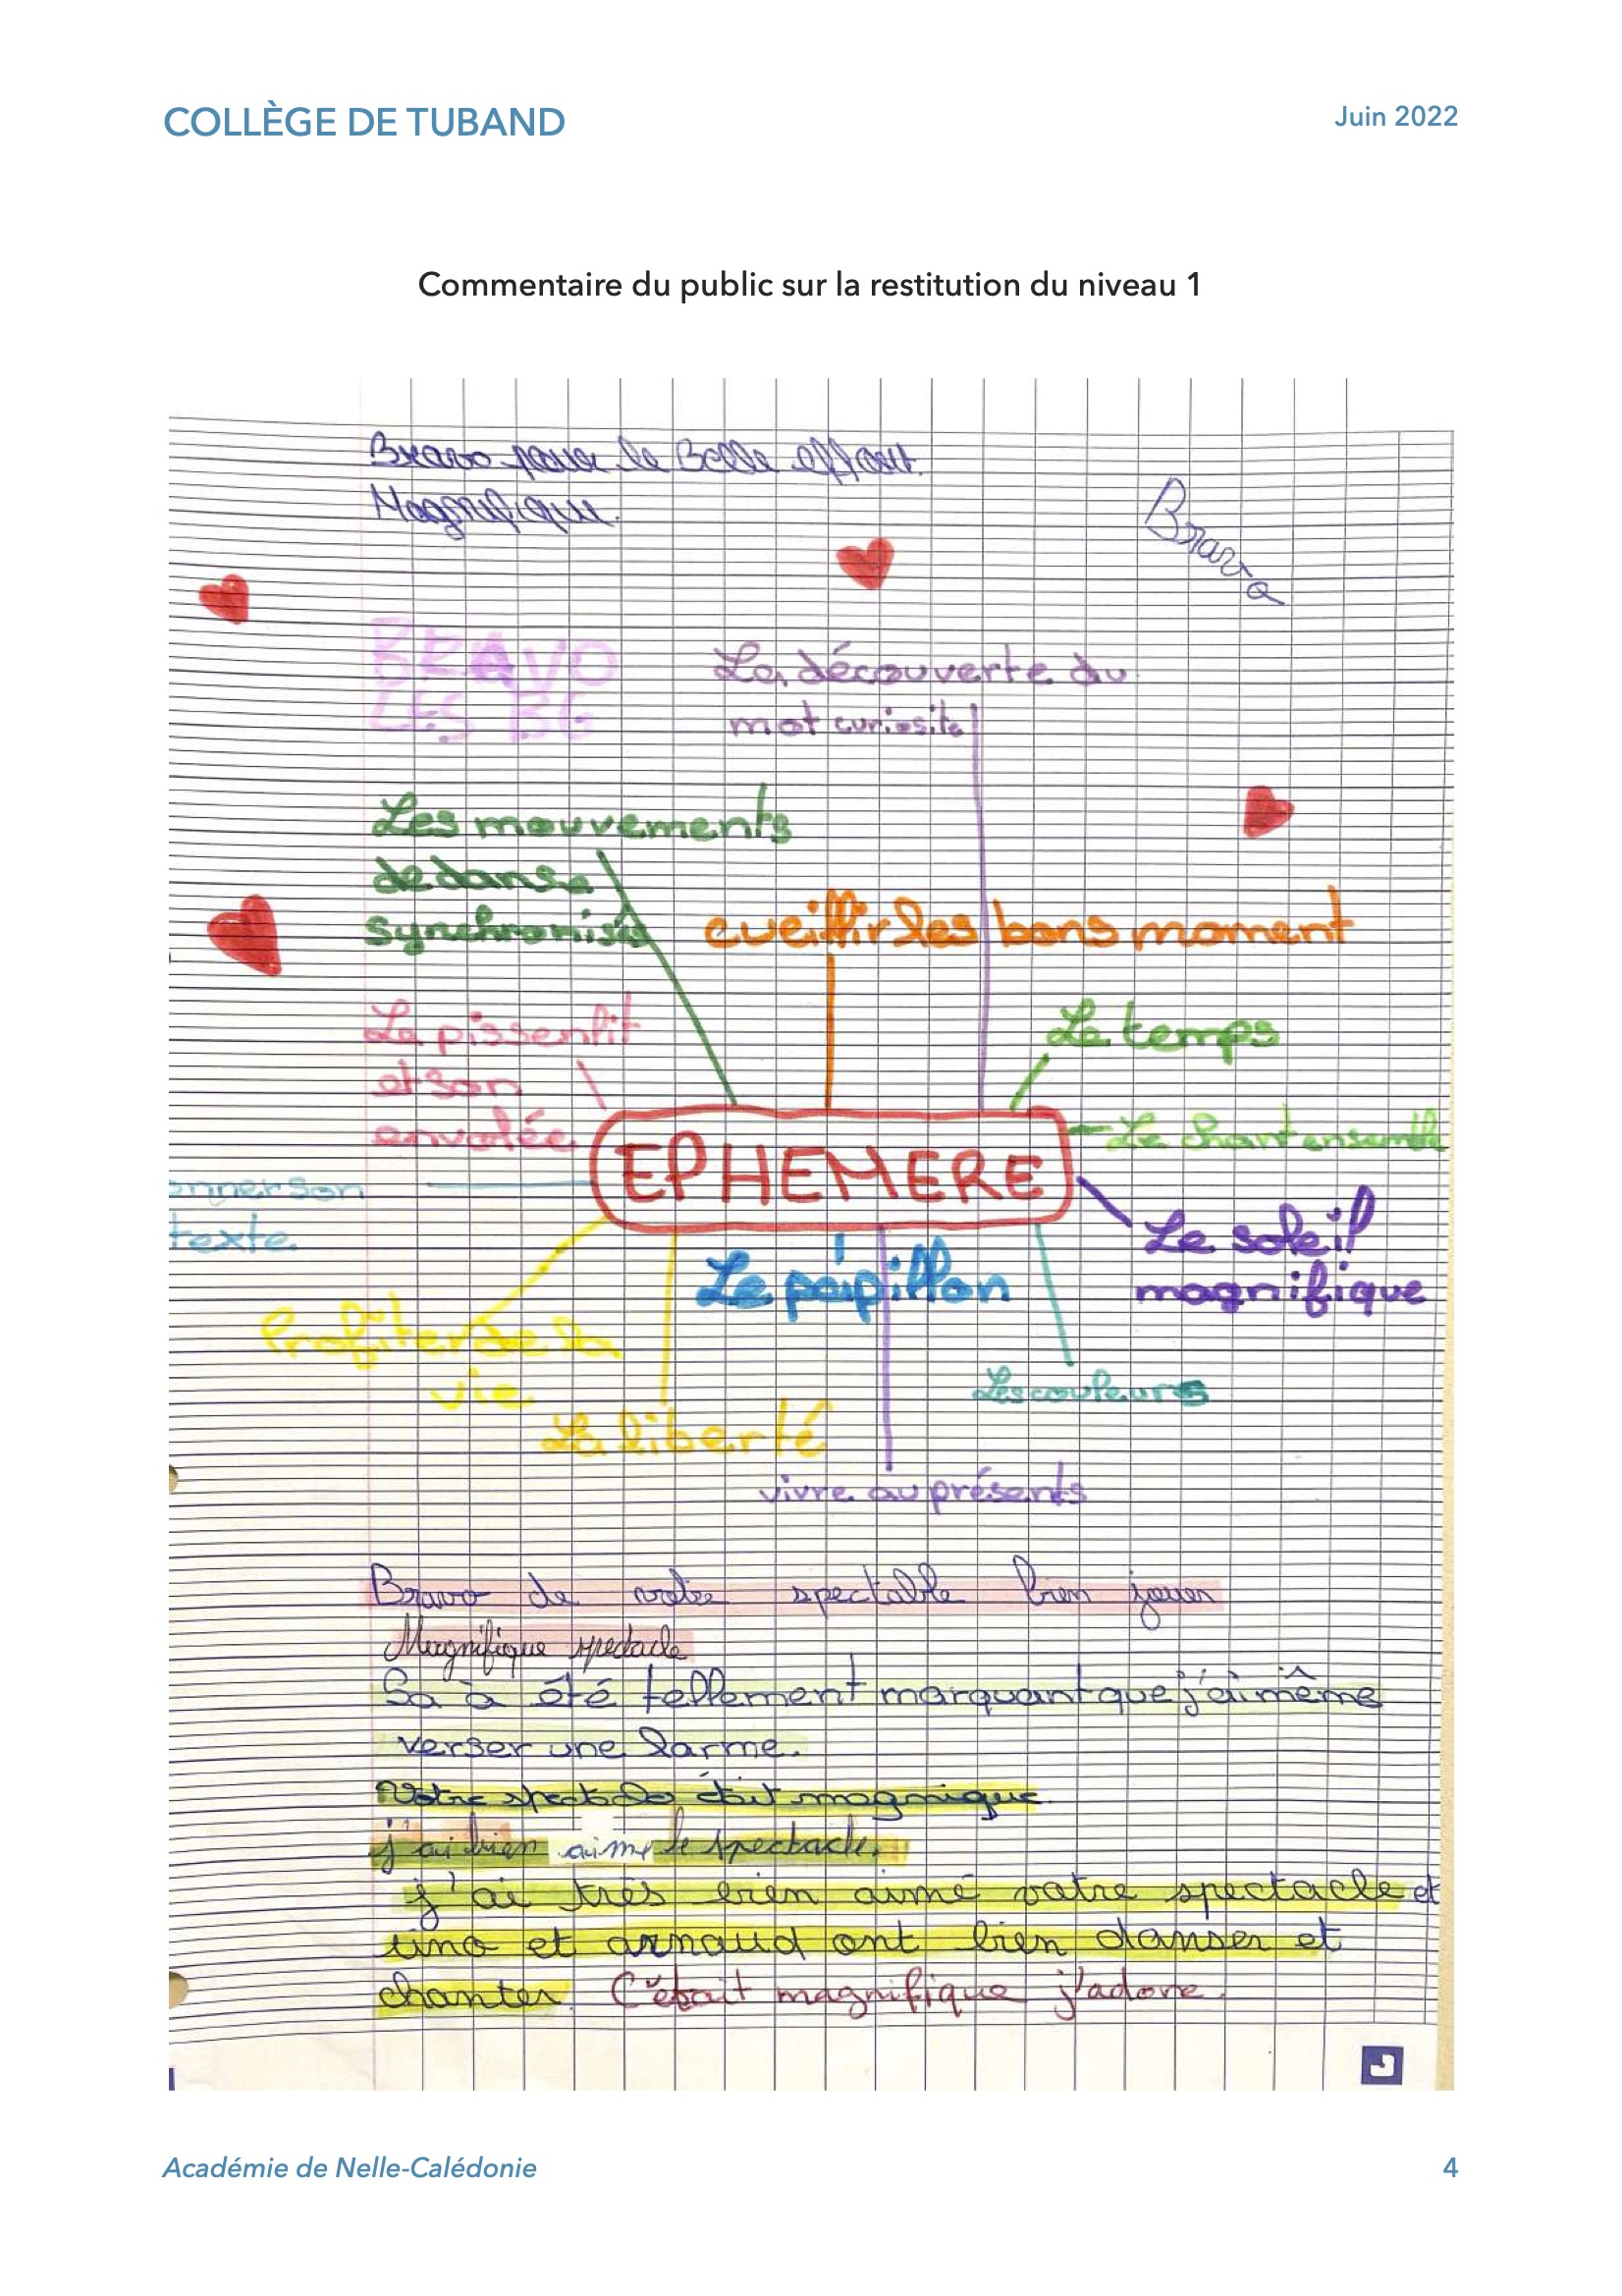 COLLÈGE DE TUBAND
Juin 2022
Commentaire du public sur la restitution du niveau 1
Bravo pour le Belle effort.
Magnifique.
Bravo
BRAVO
LES BG
La découverte du
mot curiosité
Les mouvements
de danse
synchronisés
cueillir les bons moment
Le pissenlit
et son
envolée
Le temps
Le chant ensemble
EPHEMERE
onner son
texte.
Le soleil
magnifique
Le papillon
Profiter de la
vie
La liberté
Les couleurs
vivre au présents
Bravo de votre spectable bien jouer
Magnifique spectacle
Sa à été tellement marquant que j'ai même
verser une larme.
Votre spectacle était magnique.
j'ai bien aimé le spectacle.
j'ai très bien aimé votre spectacle et
et arnaud ont bien danser et
chanter. C'était magnifique j'adore.
Académie de Nelle-Calédonie
4